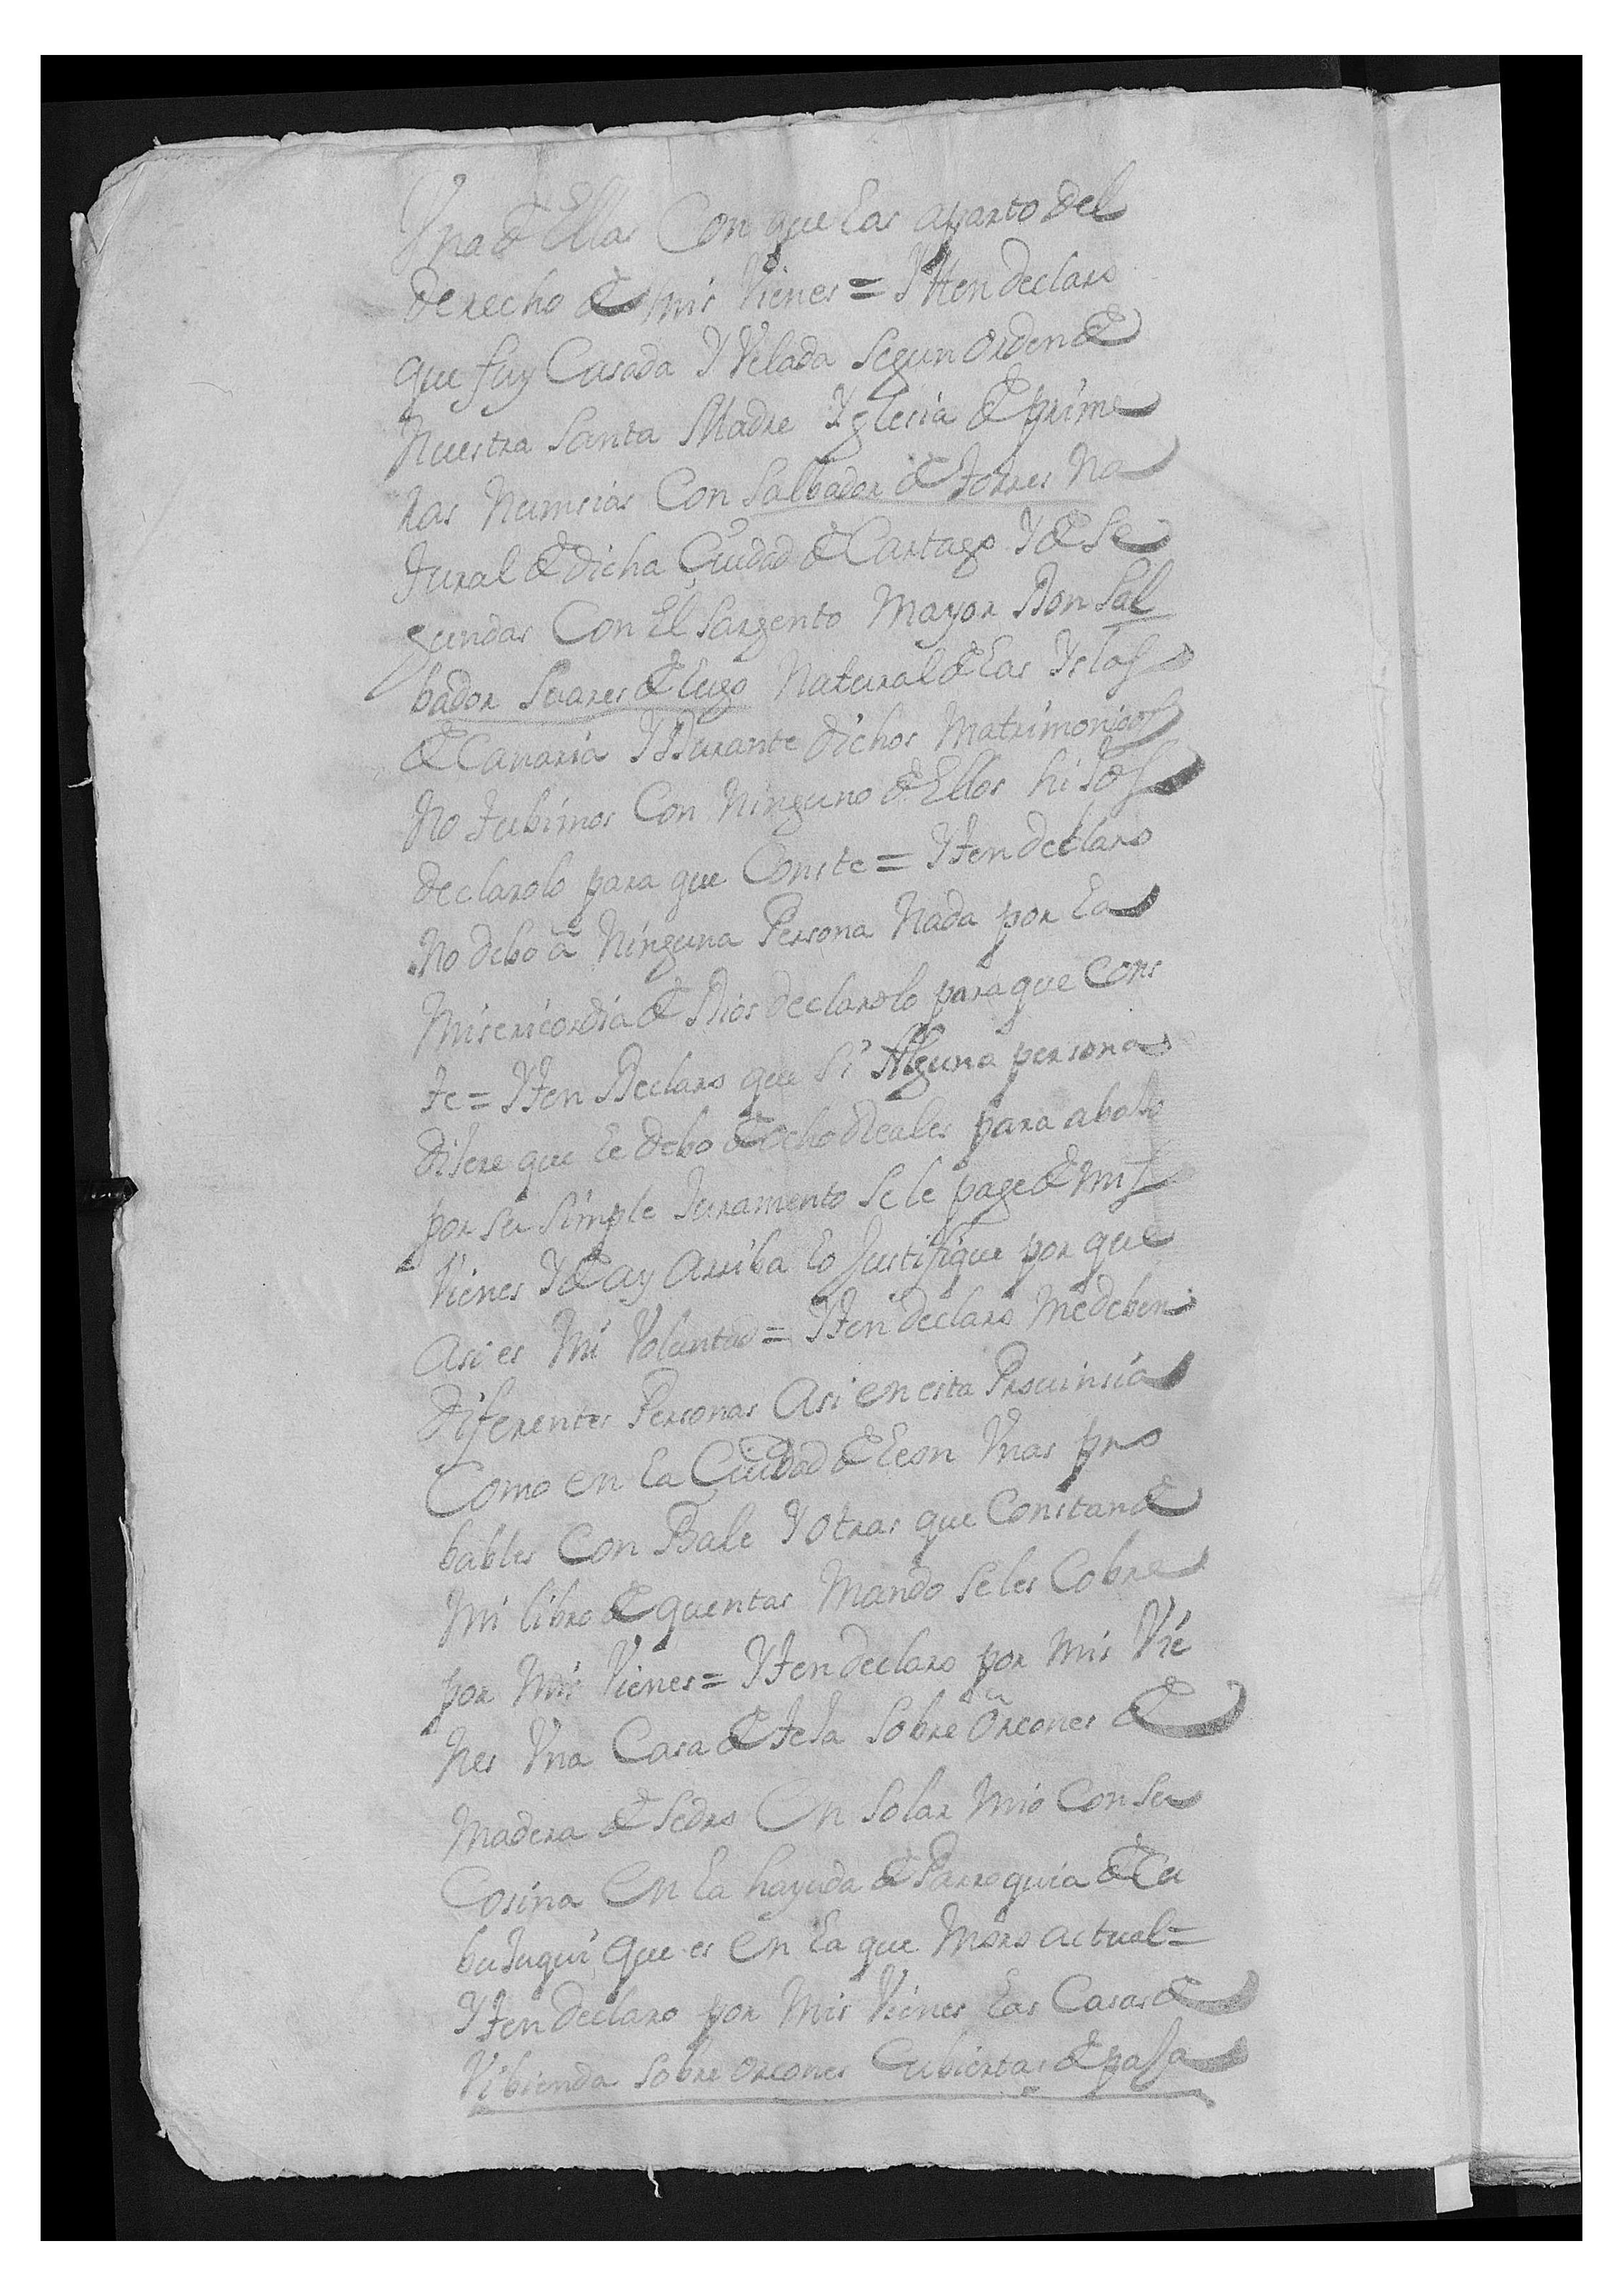 Vna de Ellas Con que las aparto del
derecho de mis Vienes = Ytten declaro
que fuy Casada Y Velada segun orden de
Nuestra Santa Madre Yglesia de prime
ras Numsias Con Salbador de Torres Na
tural de dicha Çiudad de Cartago Y de se
gundas Con El Sargento Mayor Don Sal
bador Suares de lugo Natural de las Yslas
de Canaria Y Durante dichos Matrimonios
No tubimos Con Ninguno de Ellos hijos
declarolo para que Conste = Yten declaro
No debo â Ninguna Persona Nada por la
Misericordia de Dios declarolo para que Cons
te = Yten Declaro que si Alguna persona
dijere que le debo de ocho Reales para abajo
por su simple Juramento se le page de mis
Vienes Y de ay arriba lo Justifique por que
Asi es Mi Voluntad = Yten declaro me deben
diferentes Personas Asi en esta Prouinsia
Como en la Çiudad de leon Vnas pro
bables Con Bale Y otras que Constan de
Mi libro de quentas Mando se les Cobre
por Mis Vienes = Yten declaro por mis Vie
nes Vna Casa de teja sobre orcones de
Madera de sedro En solar mio Con su
Cosina En la hayuda de Parroquia de Cu
bujuqui que es En la que Moro actual =
Yten declaro por Mis Vienes las Casas de
Vibienda sobre orcones Cubiertas de paja